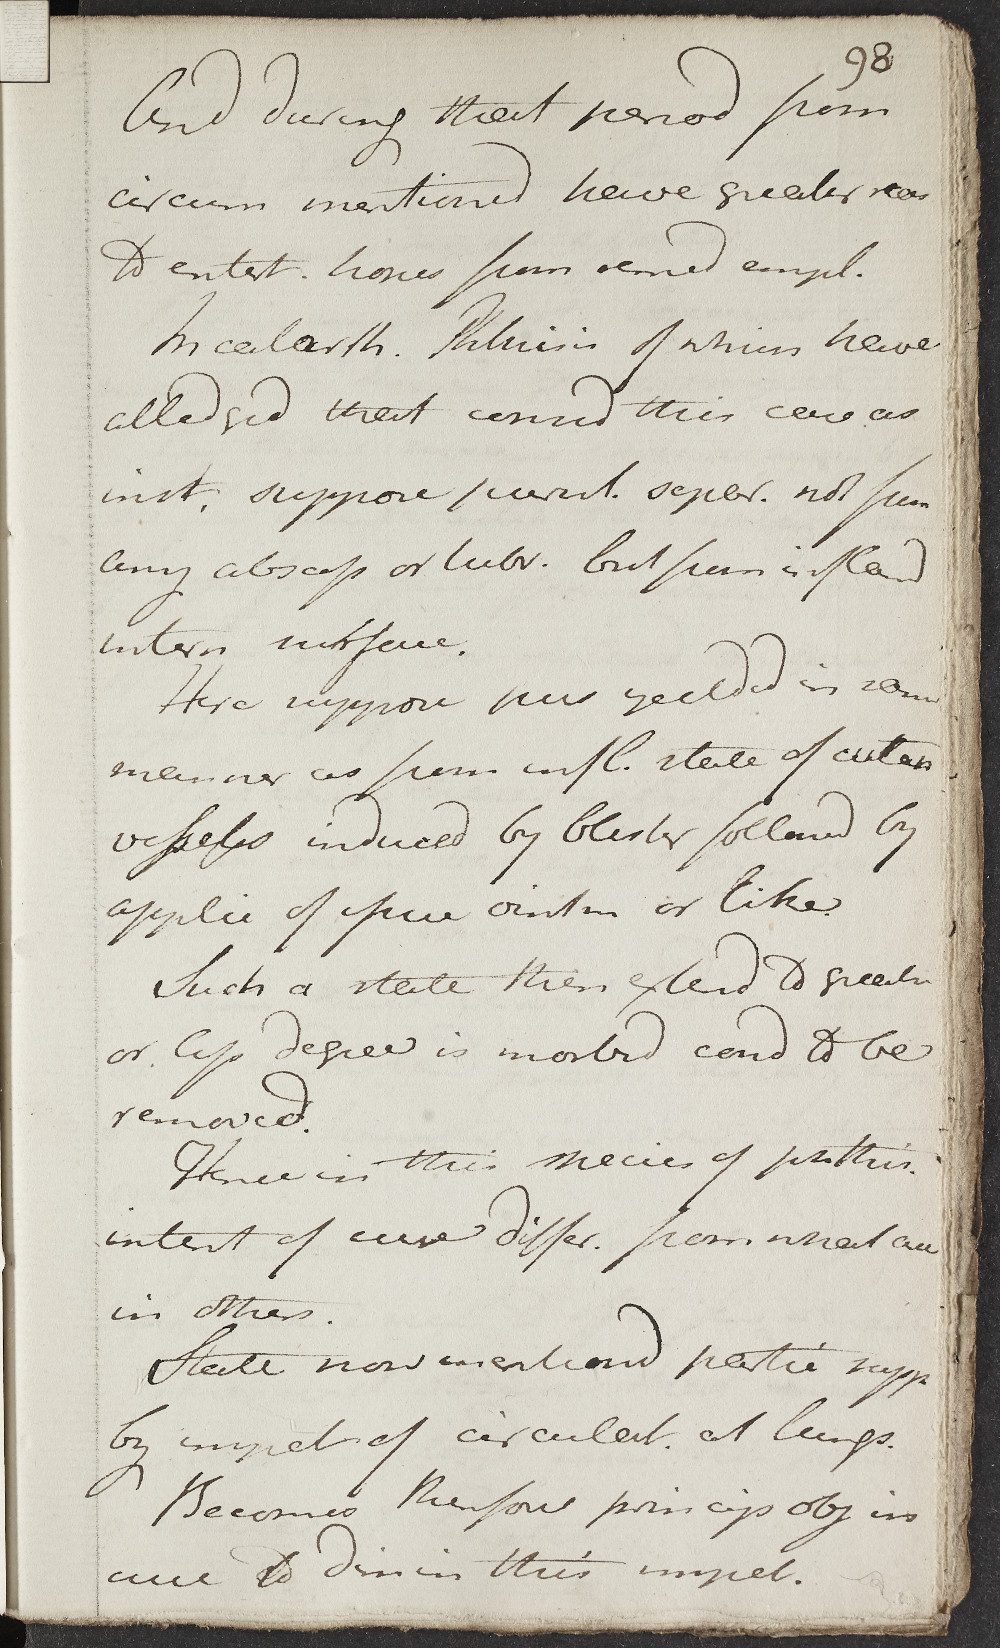 98
And during that period from
circum mentioned have greater reas
to entert. hopes from remed empl.
In catarrh. Phthisis of which have
alledged that consid this case as
inst, suppose purul. separ. not from
any abscess or tuber. but from inflamd
intern surface.
Here suppose pus yeelded in same
manner as from infl. state of cutan
vessels induced by blister followd by
applic of issue ointm or like
Such a state then extend to greater
or less degree is morbid cond to be
removed.
Hence in this species of phthis.
intent of cure differ. from what are
in others.
State now mentiond partic supp
by impet of circulat. at lungs.
Becomes therefore princip obj in
cure to dimin this impet.